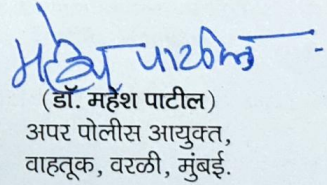 महेश पाटील
(डॉ. महेश पाटील)
अपर पोलीस आयुक्त,
वाहतूक, वरळी, मुंबई.